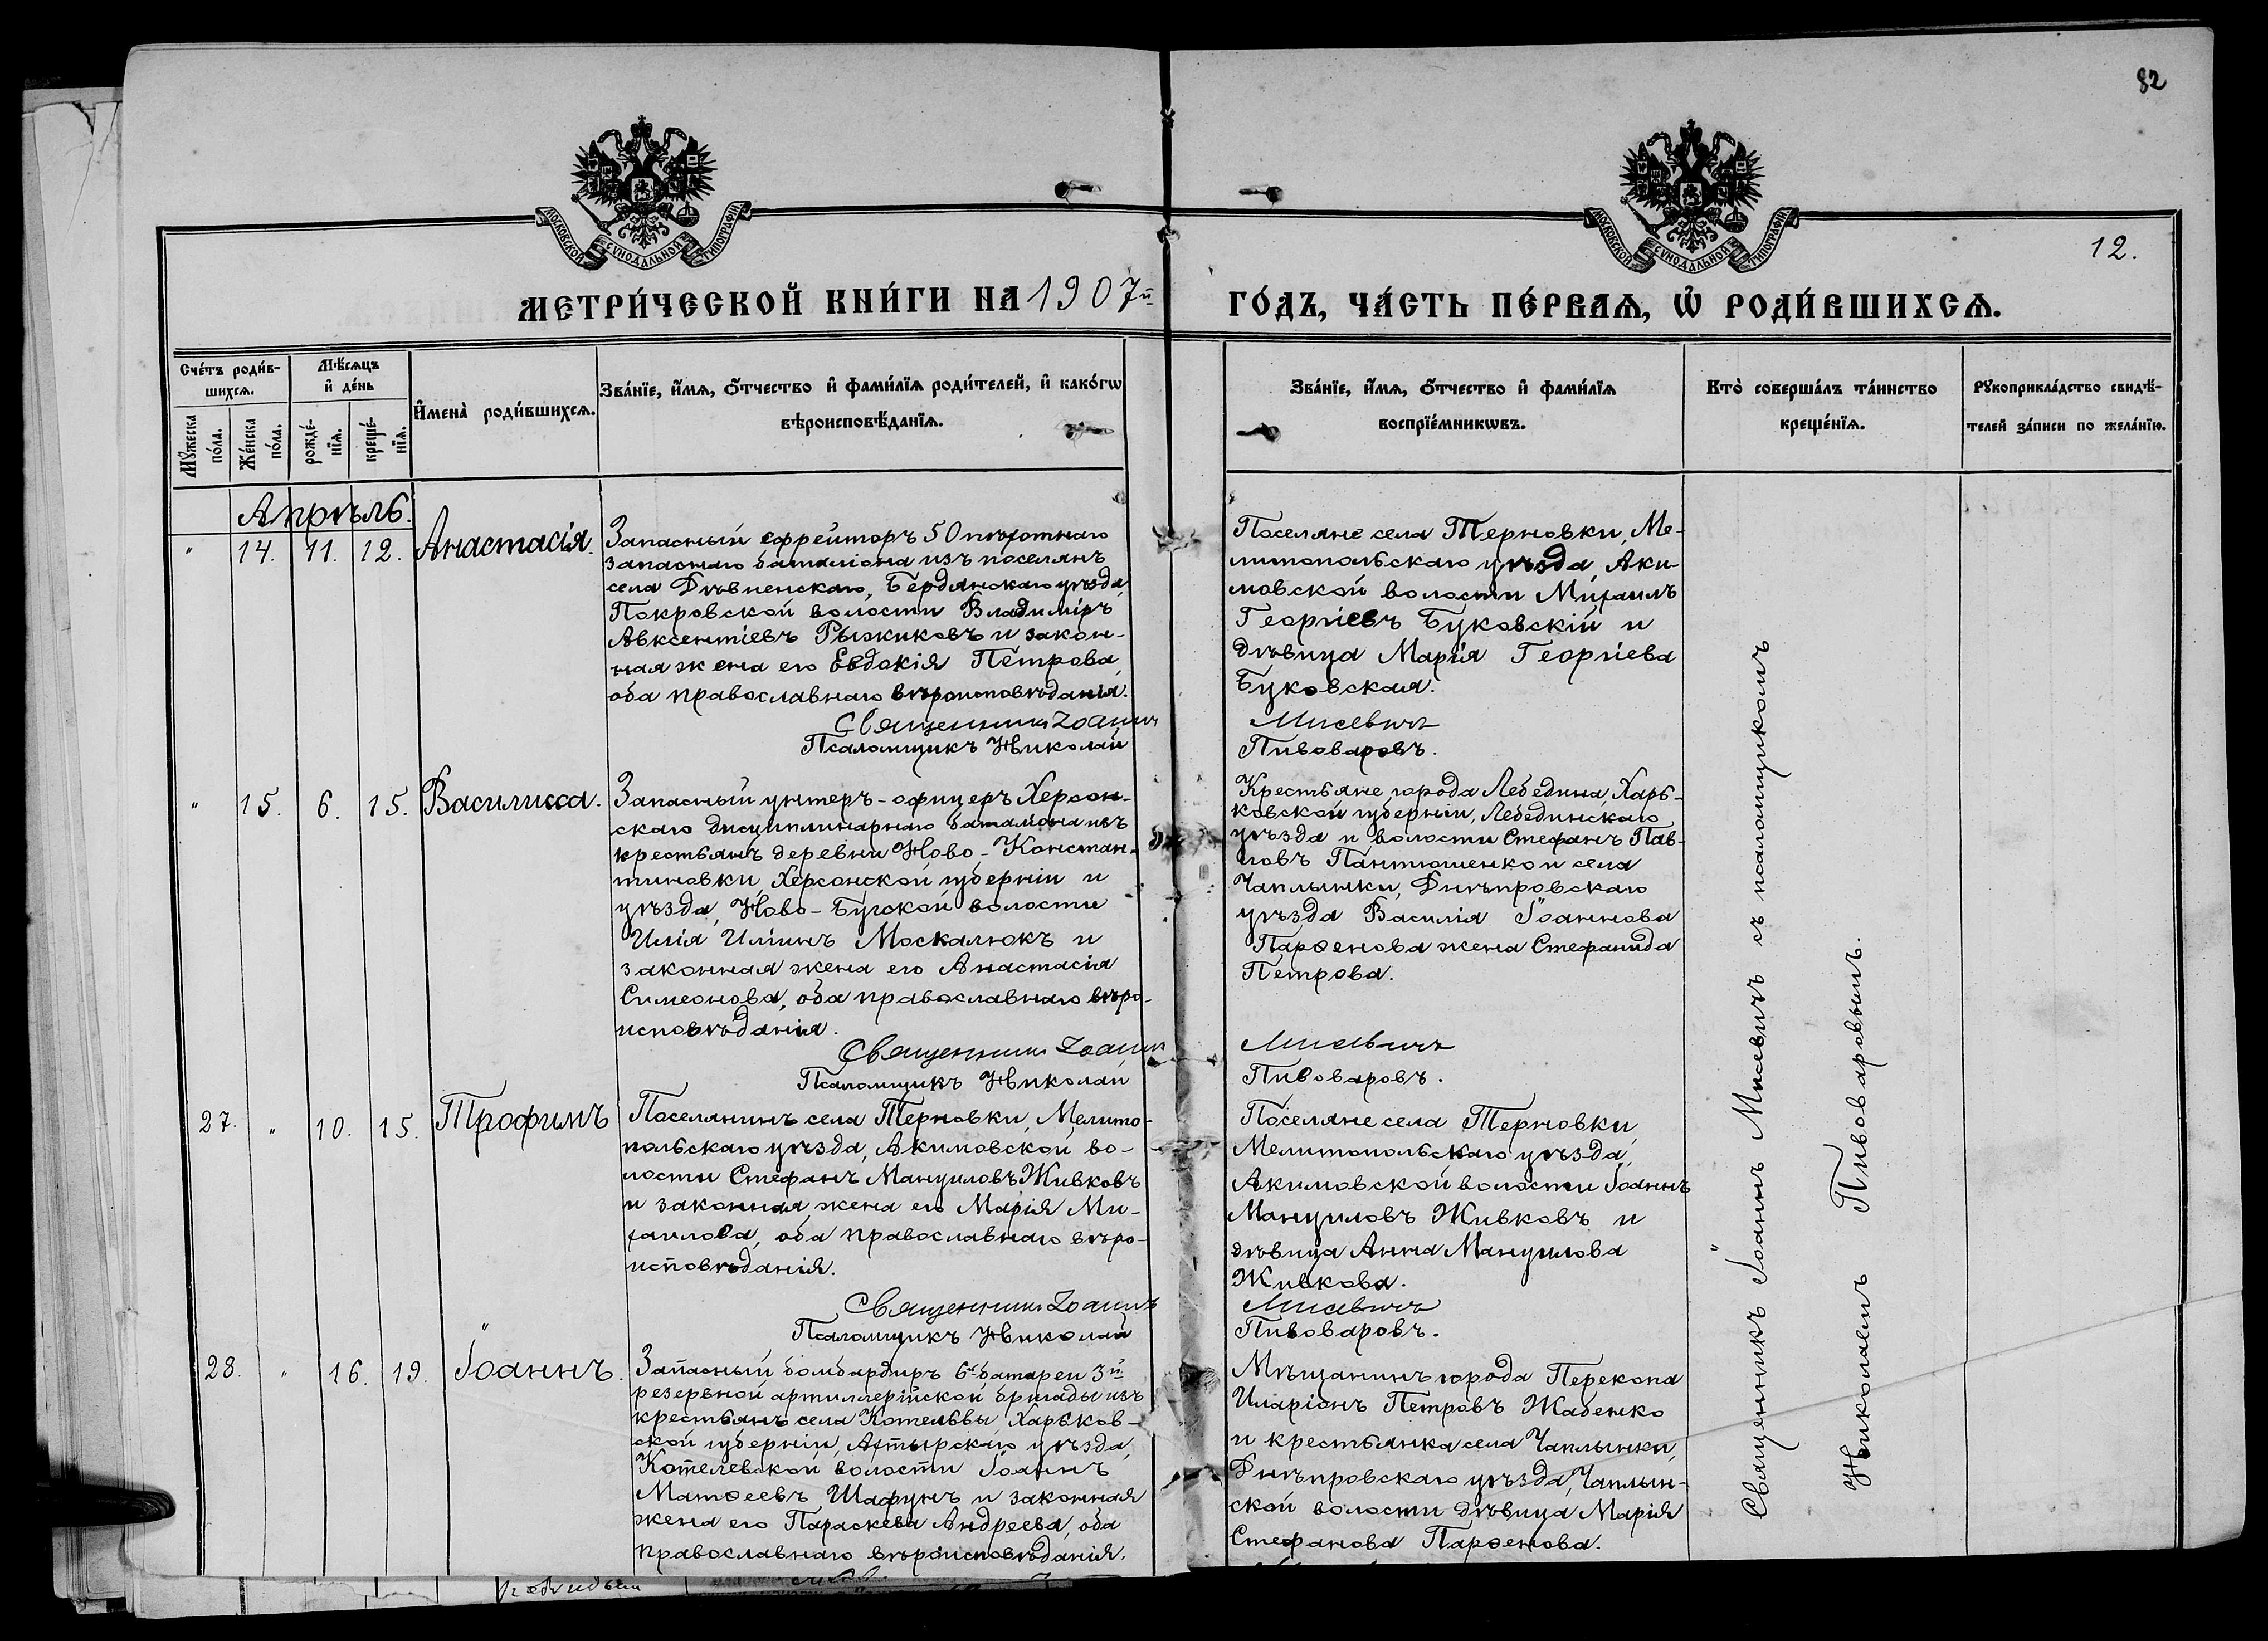 82
МОСКОВСКОЙ СѴНОДАЛЬНОЙ ТИПОГРАФІИ
МОСКОВСКОЙ СѴНОДАЛЬНОЙ ТИПОГРАФІИ
12.
МЕТРИ́ЧЕСКОЙ КНИ́ГИ НА 1907й ГО́ДЪ, ЧА́СТЬ ПЕ́РВАѦ, Ѿ РОДИ́ВШИХСѦ.
Сче́тъ роди́в-
шихсѧ.
Мꙋжеска
по́ла.
Же́нска
по́ла.
Мѣ́сѧцъ
и҆ де́нь
рожде́-
нїѧ.
креще́-
нїѧ.
И҆мена̀ роди́вшихсѧ.
Зва́нїе, и҆́мѧ, ѻ҆́тчество и҆ фами́лїѧ роди́телей, и҆ како́гѡ
вѣроисповѣ́данїѧ.
Зва́нїе, и҆́мѧ, ѻ҆́тчество и҆ фами́лїѧ
воспрїе́мникѡвъ.
Кто̀ соверша́лъ та́инство
креще́нїѧ.
Рꙋкоприкла́дство свидѣ́-
телей за́писи по жела́нїю.
Апрѣль.
" 14. 11. 12. Анастасія.
Запасный ефрейторъ 50 пѣхотнаго
запаснаго баталіона изъ поселянъ
села Дѣвненскаго, Бердянскаго уѣзда,
Покровской волости Владиміръ
Авксентіевъ Рыжиковъ и закон-
ная жена его Евдокія Петрова,
оба православнаго вѣроисповѣданія.
Священникъ Іоаннъ
Псаломщикъ Николай
Поселяне села Терновки, Ме-
литопольскаго уѣзда, Аки-
мовской волости Михаилъ
Георгіевъ Буковскій и
дѣвица Марія Георгіева
Буковская.
Мисевичъ
Пивоваровъ.
" 15. 6. 15. Василисса.
Запасный унтеръ-офицеръ Херсон-
скаго дисциплинарнаго баталіона изъ
крестьянъ деревни Ново-Констан-
тиновки, Херсонской губерніи и
уѣзда, Ново-Бугской волости
Илія Иліинъ Москалюкъ и
законная жена его Анастасія
Симеонова, оба православнаго вѣро-
исповѣданія.
Священникъ Іоаннъ
Псаломщикъ Николай
Крестьяне города Лебедина, Харь-
ковской губерніи, Лебединскаго
уѣзда и волости Стефанъ Пав-
ловъ Пантюшенко и села
Чаплынки, Днѣпровскаго
уѣзда Василія Іоаннова
Парѳенова жена Стефанида
Петрова.
Мисевичъ
Пивоваровъ.
27. " 10. 15. Трофимъ
Поселянинъ села Терновки, Мелито-
польскаго уѣзда, Акимовской во-
лости Стефанъ Мануиловъ Живковъ
и законная жена его Марія Ми-
хаилова, оба православнаго вѣро-
исповѣданія.
Священникъ Іоаннъ
Псаломщикъ Николай
Поселяне села Терновки,
Мелитопольскаго уѣзда,
Акимовской волости Іоаннъ
Мануиловъ Живковъ и
дѣвица Анна Мануилова
Живкова.
Мисевичъ
Пивоваровъ.
28. " 16. 19. Іоаннъ.
Запасный бомбардиръ 6й батареи 3й
резервной артиллерійской бригады изъ
крестьянъ села Котельвы, Харьков-
ской губерніи, Ахтырскаго уѣзда,
Котелевской волости Іоаннъ
Матѳеевъ Шафунъ и законная
жена его Параскева Андреева, оба
православнаго вѣроисповѣданія.
Мѣщанинъ города Перекопа
Иларіонъ Петровъ Жабенко
и крестьянка села Чаплынки,
Днѣпровскаго уѣзда, Чаплын-
ской волости дѣвица Марія
Стефанова Парѳенова.
Священникъ Іоаннъ Мисевичъ съ псаломщикомъ
Николаемъ Пивоваровымъ.